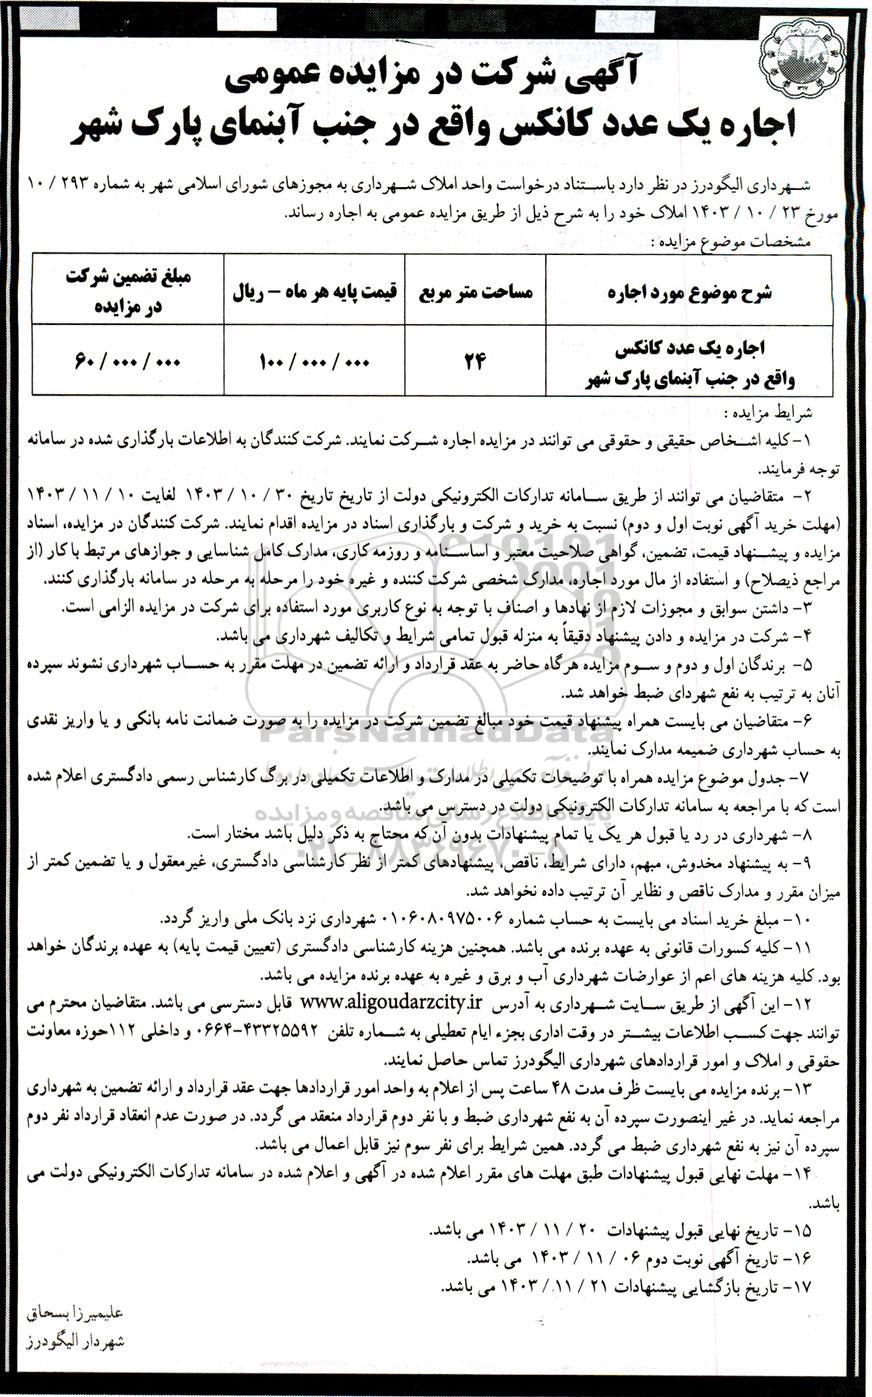 آگهی شرکت در مزایده عمومی
اجاره یک عدد کانکس واقع در جنب آبنمای پارک شهر
شهرداری الیگودرز در نظر دارد باستناد درخواست واحد املاک شهرداری به مجوزهای شورای اسلامی شهر به شماره ۲۹۳ / ۱۰
مورخ ۲۳ / ۱۰ / ۱۴۰۳ املاک خود را به شرح ذیل از طریق مزایده عمومی به اجاره رساند.
مشخصات موضوع مزایده :
شرح موضوع مورد اجاره	مساحت متر مربع	قیمت پایه هر ماه – ریال	مبلغ تضمین شرکت
در مزایده
اجاره یک عدد کانکس
واقع در جنب آبنمای پارک شهر	۲۴	۱۰۰/۰۰۰/۰۰۰	۶۰/۰۰۰/۰۰۰
شرایط مزایده :
۱-کلیه اشخاص حقیقی و حقوقی می توانند در مزایده اجاره شرکت نمایند. شرکت کنندگان به اطلاعات بارگذاری شده در سامانه
توجه فرمایند.
۲- متقاضیان می توانند از طریق سامانه تدارکات الکترونیکی دولت از تاریخ تاریخ ۳۰ / ۱۰ / ۱۴۰۳ لغایت ۱۰ / ۱۱ / ۱۴۰۳
(مهلت خرید آگهی نوبت اول و دوم) نسبت به خرید و شرکت و بارگذاری اسناد در مزایده اقدام نمایند. شرکت کنندگان در مزایده، اسناد
مزایده و پیشنهاد قیمت، تضمین، گواهی صلاحیت معتبر و اساسنامه و روزمه کاری، مدارک کامل شناسایی و جوازهای مرتبط با کار (از
مراجع ذیصلاح) و استفاده از مال مورد اجاره، مدارک شخصی شرکت کننده و غیره خود را مرحله به مرحله در سامانه بارگذاری کنند.
۳- داشتن سوابق و مجوزات لازم از نهادها و اصناف با توجه به نوع کاربری مورد استفاده برای شرکت در مزایده الزامی است.
۴- شرکت در مزایده و دادن پیشنهاد دقیقاً به منزله قبول تمامی شرایط و تکالیف شهرداری می باشد.
۵- برندگان اول و دوم و سوم مزایده هرگاه حاضر به عقد قرارداد و ارائه تضمین در مهلت مقرر به حساب شهرداری نشوند سپرده
آنان به ترتیب به نفع شهردای ضبط خواهد شد.
۶- متقاضیان می بایست همراه پیشنهاد قیمت خود مبالغ تضمین شرکت در مزایده را به صورت ضمانت نامه بانکی و یا واریز نقدی
به حساب شهرداری ضمیمه مدارک نمایند.
ParsNamadData
۷- جدول موضوع مزایده همراه با توضیحات تکمیلی در مدارک و اطلاعات تکمیلی در برگ کارشناس رسمی دادگستری اعلام شده
است که با مراجعه به سامانه تدارکات الکترونیکی دولت در دسترس می باشد.
پایگاه اطلاع رسانی مناقصه و مزایده
۸- شهرداری در رد یا قبول هر یک یا تمام پیشنهادات بدون آن که محتاج به ذکر دلیل باشد مختار است.
۰۲۱-۸۸۳۴۹۶۷۰-۵
۹- به پیشنهاد مخدوش، مبهم، دارای شرایط، ناقص، پیشنهادهای کمتر از نظر کارشناسی دادگستری، غیرمعقول و یا تضمین کمتر از
میزان مقرر و مدارک ناقص و نظایر آن ترتیب داده نخواهد شد.
۱۰- مبلغ خرید اسناد می بایست به حساب شماره ۰۱۰۶۰۸۰۹۷۵۰۰۶ شهرداری نزد بانک ملی واریز گردد.
۱۱-کلیه کسورات قانونی به عهده برنده می باشد. همچنین هزینه کارشناسی دادگستری (تعیین قیمت پایه) به عهده برندگان خواهد
بود. کلیه هزینه های اعم از عوارضات شهرداری آب و برق و غیره به عهده برنده مزایده می باشد.
۱۲- این آگهی از طریق سایت شهرداری به آدرس www.aligoudarzcity.ir قابل دسترسی می باشد. متقاضیان محترم می
توانند جهت کسب اطلاعات بیشتر در وقت اداری بجزء ایام تعطیلی به شماره تلفن ۴۳۳۲۵۵۹۲-۰۶۶۴ و داخلی ۱۱۲حوزه معاونت
حقوقی و املاک و امور قراردادهای شهرداری الیگودرز تماس حاصل نمایند.
۱۳- برنده مزایده می بایست ظرف مدت ۴۸ ساعت پس از اعلام به واحد امور قراردادها جهت عقد قرارداد و ارائه تضمین به شهرداری
مراجعه نماید. در غیر اینصورت سپرده آن به نفع شهرداری ضبط و با نفر دوم قرارداد منعقد می گردد. در صورت عدم انعقاد قرارداد نفر دوم
سپرده آن نیز به نفع شهرداری ضبط می گردد. همین شرایط برای نفر سوم نیز قابل اعمال می باشد.
۱۴- مهلت نهایی قبول پیشنهادات طبق مهلت های مقرر اعلام شده در آگهی و اعلام شده در سامانه تدارکات الکترونیکی دولت می
باشد.
۱۵- تاریخ نهایی قبول پیشنهادات ۲۰ / ۱۱ / ۱۴۰۳ می باشد.
۱۶- تاریخ آگهی نوبت دوم ۰۶ / ۱۱ / ۱۴۰۳ می باشد.
۱۷- تاریخ بازگشایی پیشنهادات ۲۱ / ۱۱ / ۱۴۰۳ می باشد.
علیمیرزا بسحاق
شهردار الیگودرز